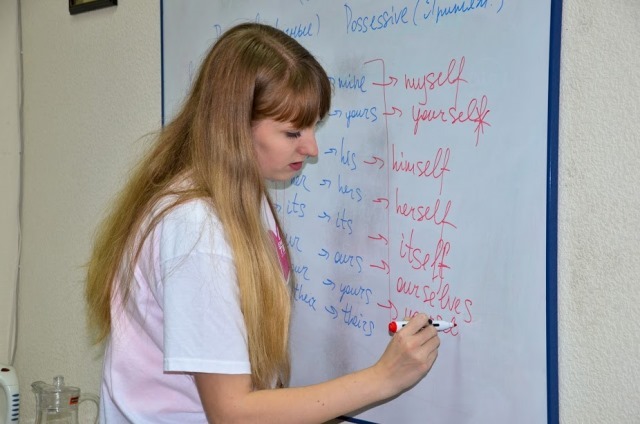 Possessive (Притяжат.)
mine → myself
→ yours → yourself*
→ his → himself
her → hers → herself
its → its → itself
our → ours → ourselves
→ yours →
their → theirs